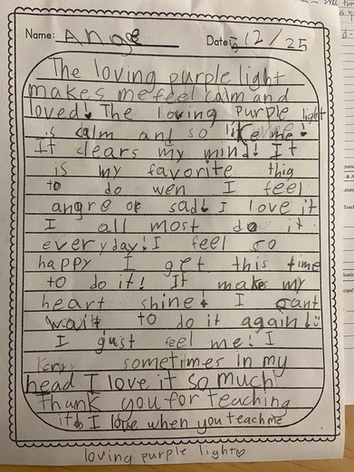 Name: Ange Date 12/25
The loving purple light
makes me feel calm and
loved! The loving purple light
is calm and so like me!
It clears my mind! It
is my favorite thig
to do wen I feel
angre or sad! I love it
I all most do it
everyday! I feel so
happy I get this time
to do it! It makes my
heart shine! I cant
wait to do it again!
I gust feel me! I
sometimes in my
head I love it so much!
Thank you for teaching
it! I love when you teach me
loving purple light